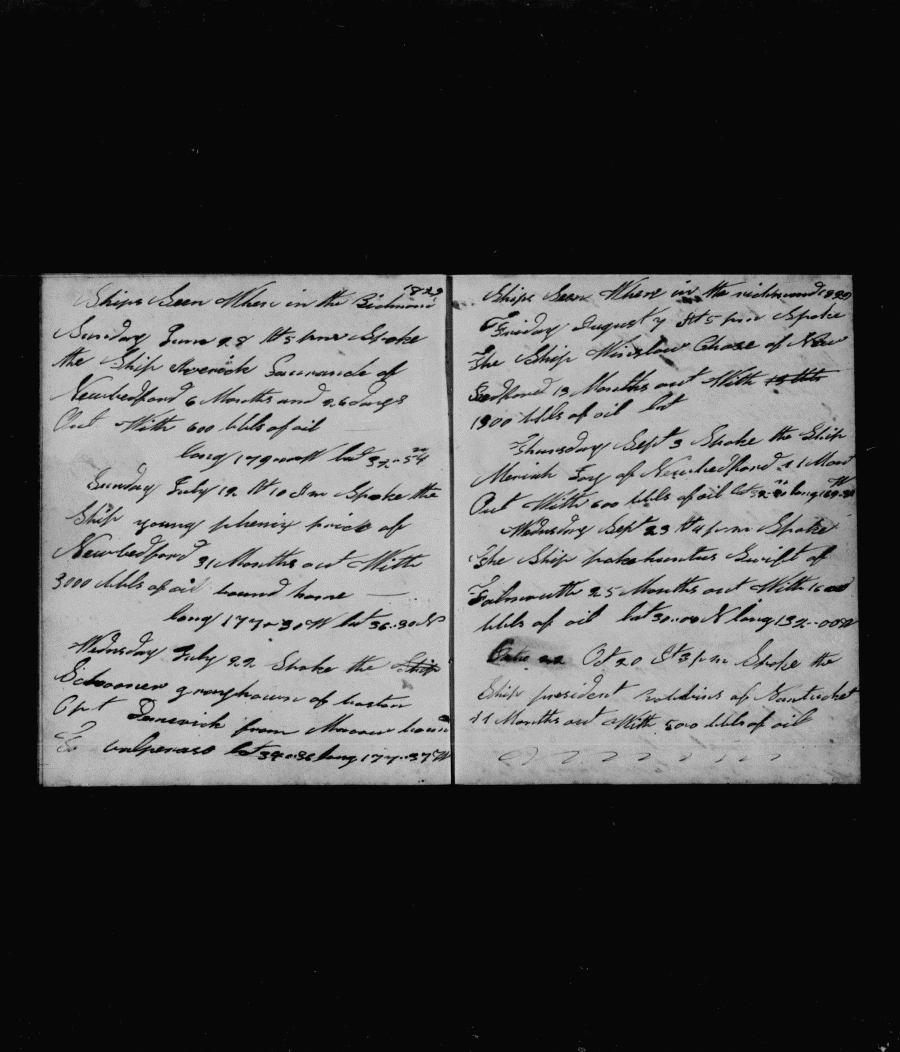 1829
Ships Seen When in the Richmond
Sunday June 28 At 5 pm Spoke
the Ship Maverick Lawrance of
Newbedford 6 Months and 26 days
Out With 600 bbls of oil
long 179 W lat 32-54
Sunday July 12 At 10 Am Spoke the
Ship young phenix price of
Newbedford 31 Months out With
3000 bbls of oil bound home
long 177-30 W lat 36-30 N
Wednsday July 22 Spoke the Ship
Schooner grayhown of boston
Cpt from bound
To valperaso lat 34-36 long 177-37 W
Ships Seen When in the richmond 1829
Friday August 7 At 5 pm Spoke
The Ship Winslow Chase of New
Bedford 13 Months out With 13
1300 bbls of oil lat
Thursday Sept 3 Spoke the Ship
Moriah Joy of Newbedford 11 Mont
Out With 600 bbls of oil lat long W
Wednsday Sept 23 At 4 pm Spoke
The Ship pokohantus Swift of
Falmouth 25 Months out With 1600
bbls of oil lat 30-00 N long 132-00 W
22 Oct 20 At 3 pm Spoke the
Ship president of Nantucket
11 Months out With 500 bbls of oil